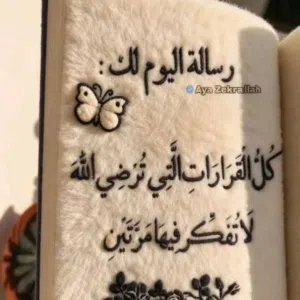 رسالة اليوم لك :
© Aya Zekrallah
كُلُّ الْقَرَارَاتِ الَّتِي تُرْضِي اللهَ
لَا تُفَكِّر فِيهَا مَرَّتَيْنِ